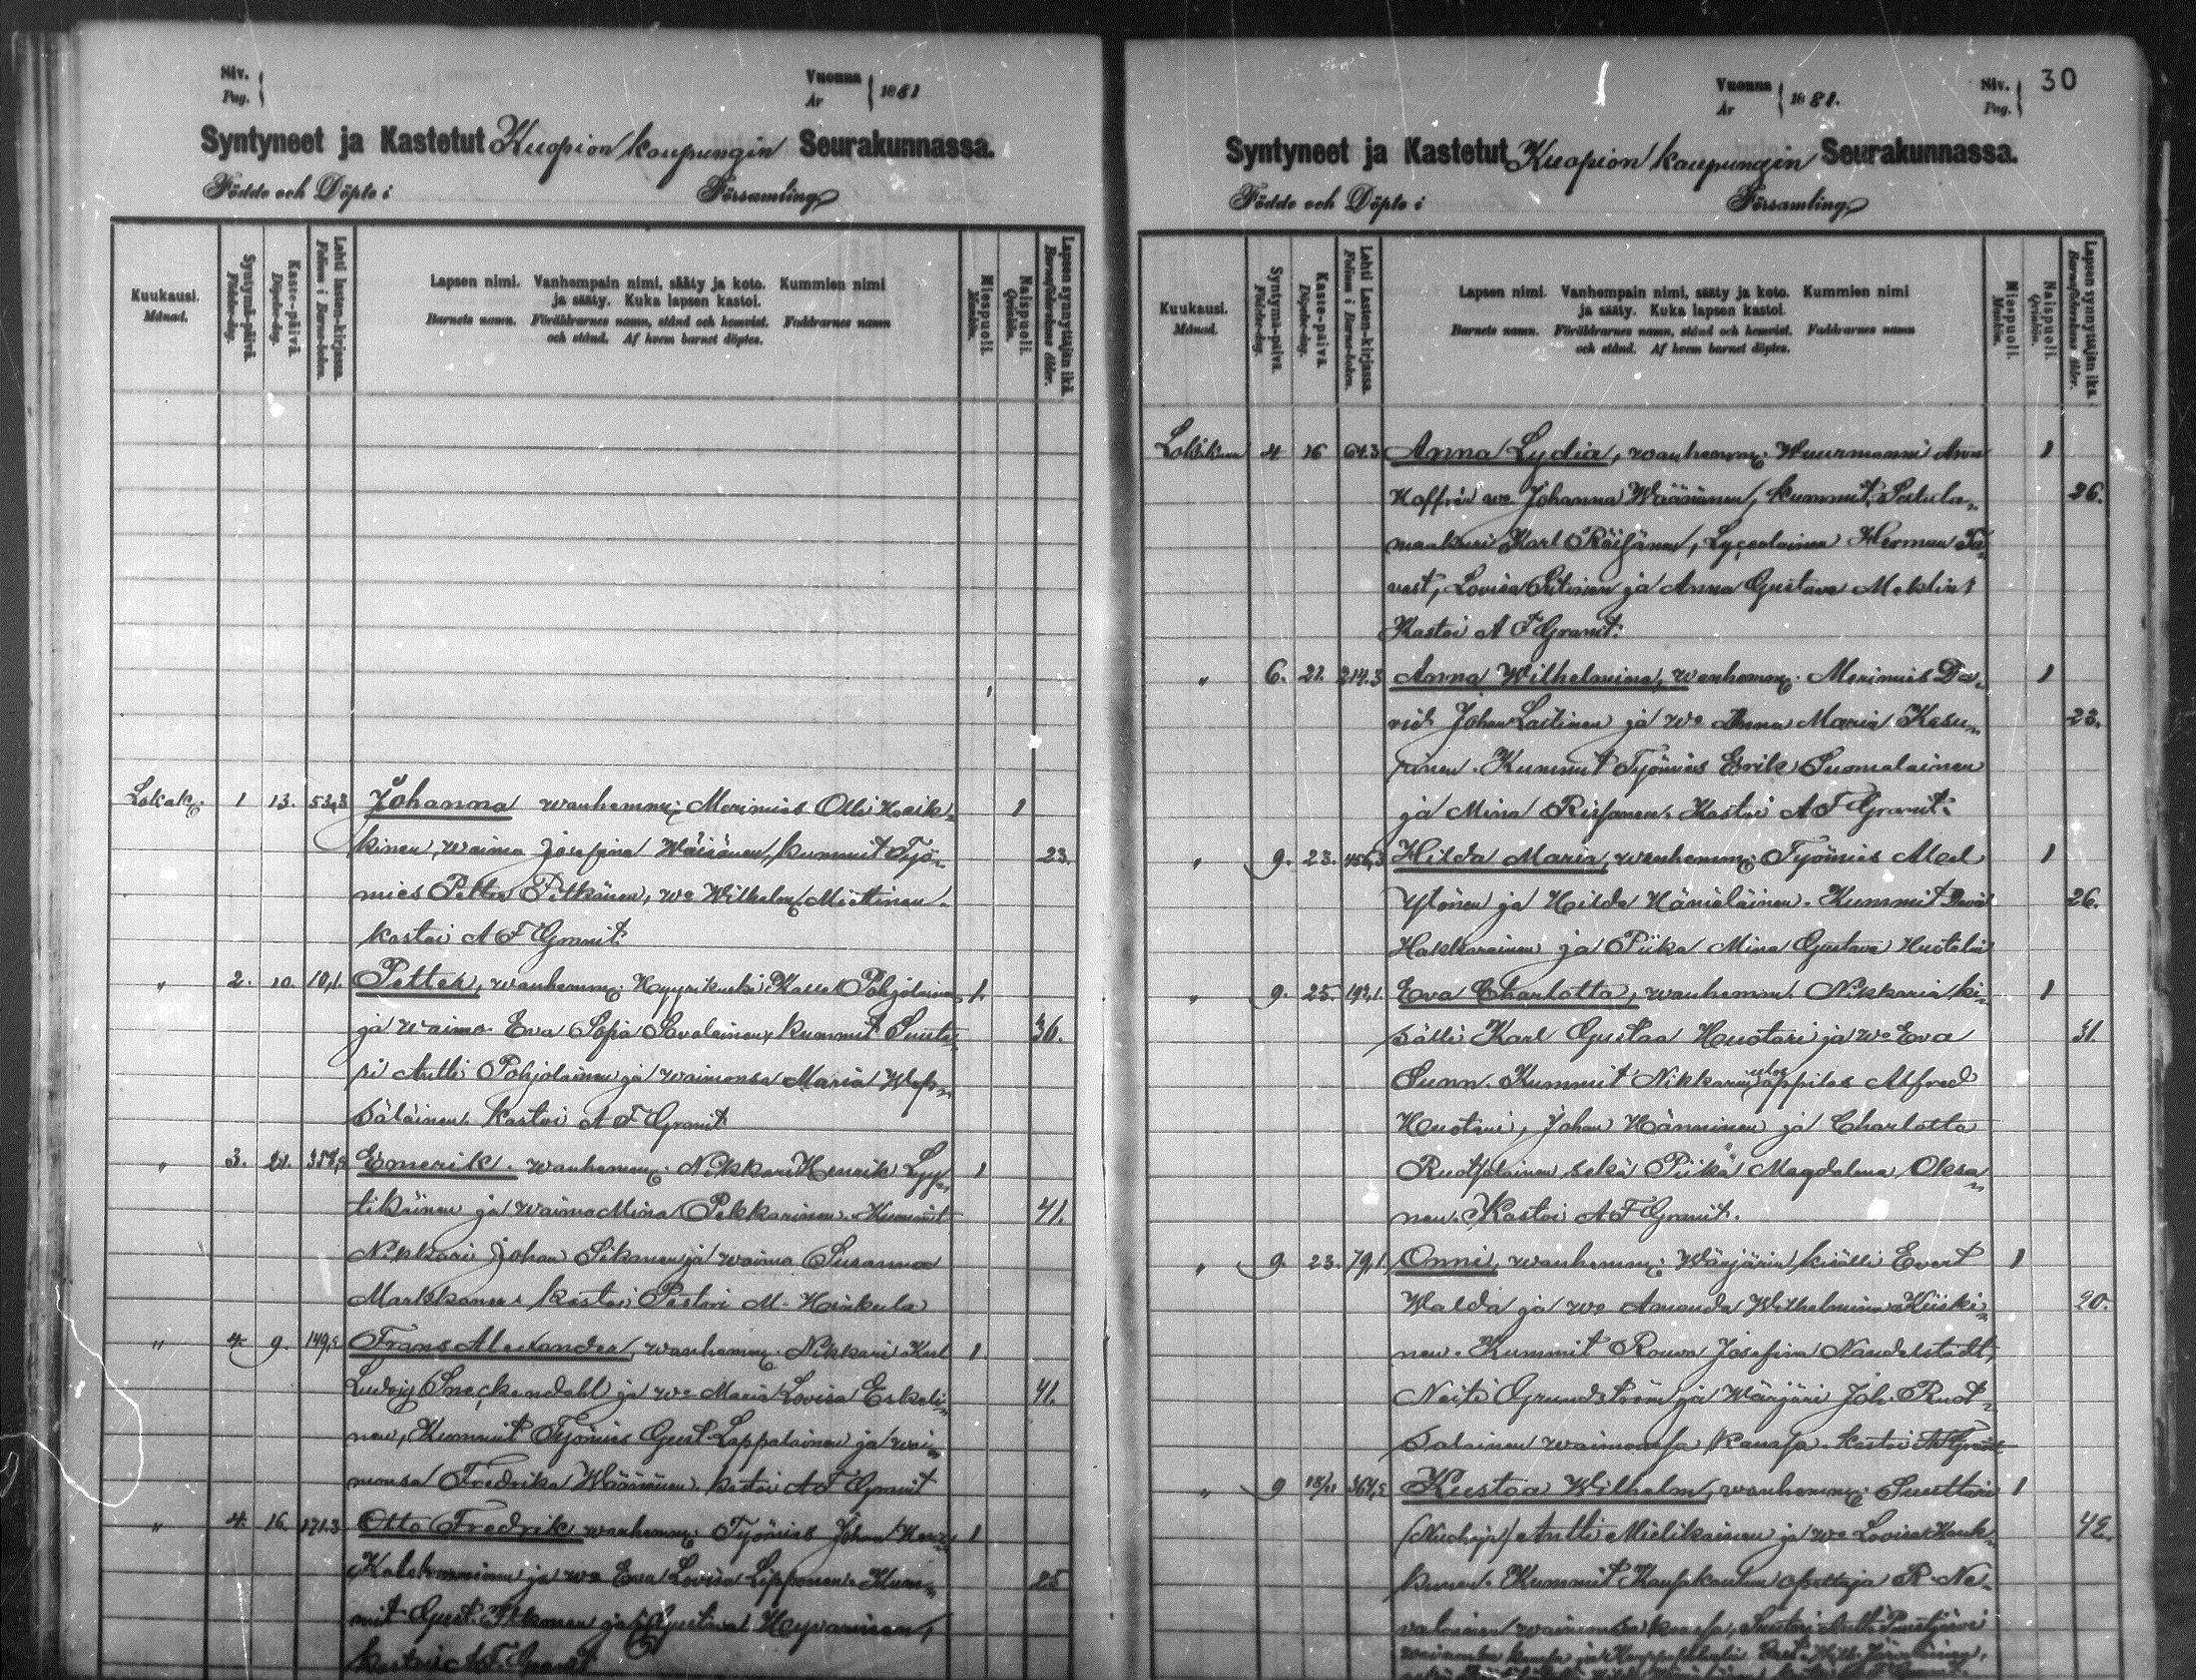 Siv.
Pag.
Vuonna
År
1881
Syntyneet ja Kastetut Kuopion kaupungin Seurakunnassa.
Födde och Döpte i Församling
Kuukausi.
Månad.
Syntymä-päivä.
Födelse-dag.
Kaste-päivä
Döpelse-dag.
Lehti lasten-kirjassa.
Folium i Barna-boken.
Lapsen nimi. Vanhempain nimi, sääty ja koto. Kummien nimi
ja sääty. Kuka lapsen kastoi.
Barnets namn. Föräldrarnes namn, stånd och hemvist. Faddrarnes namn
och stånd. Af hvem barnet döptes.
Miespuoli.
Mankön.
Naispuoli.
Qvinkön.
Lapsen synnyttäjän ikä.
Barnaföderskans ålder.
Lokak. 1 13. 53,3 Johanna wanhemm: Merimies Olli Heik- 1
kinen, waimo Josefina Wäisänen, kummit Työ- 23.
mies Petter Pitkänen, wo Wilhelm. Miettinen.
kastoi A F Granit.
" 2. 10. 10,1. Petter, wanhemm: Kalle Pohjolainen 1.
ja waimo Eva Sofia Savolainen, kummit Suuta- 36.
ri Antti Pohjolainen ja waimonsa Maria Wep-
säläinen. kastoi A F Granit
" 3. 21. Emerik. wanhemm: Nikkari Henrik Lyy- 1
tikäinen ja waimo Mina Pekkarinen. Kummit 41.
Nikkari Johan Sikanen ja waimo Susanna
Markkanen. kastoi Pastori M. Heinkula
" 4. 9. 149,5 Frans Alexander, wanhemm: Nikkari Karl 1
Ludvig Sneckendahl ja wo Maria Lovisa Eskeli- 41.
nen, Kummit Työmies Gust. Lappalainen ja wai-
monsa Fredrika Wäänänen. kastoi A F Granit
" 4. 16. 171.3 Otto Fredrik wanhemm: Työmies Johan 1
ja wo Eva Lovisa Lipponen. Kum- 25
mit Gust. ja Gustava
kastoi A F Granit
Vuonna
År
1881.
Siv.
Pag.
30
Syntyneet ja Kastetut Kuopion kaupungin Seurakunnassa.
Födde och Döpte i Församling
Kuukausi.
Månad.
Syntymä-päivä.
Födelse-dag.
Kaste-päivä.
Döpelse-dag.
Lehti Lasten-kirjassa.
Folium i Barna-boken.
Lapsen nimi. Vanhempain nimi, sääty ja koto. Kummien nimi
ja sääty. Kuka lapsen kastoi.
Barnets namn. Föräldrarnes namn, stånd och hemvist. Faddrarnes namn
och stånd. Af hvem barnet döptes.
Miespuoli.
Mankön.
Naispuoli.
Qvinkön.
Lapsen synnyttäjän ikä.
Barnaföderskans ålder.
4. 16 64.3 Anna Lydia, wanhemm: Wuurmanni 1
Hoffrén wo Johanna Wäänänen, kummit, Satula- 26.
maakari Karl Räisänen, Lyceolainen Herman Ta-
vast, Lovisa ja Anna Gustava Meklin
Kastoi A F Granit.
" 6. 21. 214.3 Anna Wilhelmina, wanhemm: Merimies Da- 1
vid Johan Laitinen ja wo Anna Maria Kasu- 23.
rinen. Kummit Työmies Erik Suomalainen
ja Mina Rissanen. Kastoi A F Granit.
" 9. 23. Hilda Maria, wanhemm: Työmies 1
Ylönen ja Hilda Kummit 26.
Hakkarainen ja Piika Mina Gustava
" 9. 25. Eva Charlotta, wanhemm. Nikkarin ki- 1
sälli Karl Gustaa Huotari ja wo Eva 31.
Sunn. Kummit Nikkarin oppilas Alfred
Huotari, Johan Hänninen ja Charlotta
Ruotsalainen sekä Piika Magdalena Oksa-
nen. Kastoi A F Granit.
" 9. 23. 79,1 Onni, wanhemm: Wärjärin kisälli Evert 1
Walda ja wo Amanda Wilhelmina Kiiski- 20.
nen. Kummit Rouva Josefina Nandelstadt,
Neiti Grundström ja Wärjäri Joh. Ruot-
salainen waimonsa kanssa. kastoi A F Granit
" 9 364,5 Kustaa Wilhelm, wanhemm: Suuttari 1
Antti Mielikainen ja wo Lovisa Hauk- 42.
kanen. Kummit Kansakoulun opettaja R. Ne-
valainen waimonsa kanssa, Suutari Antti